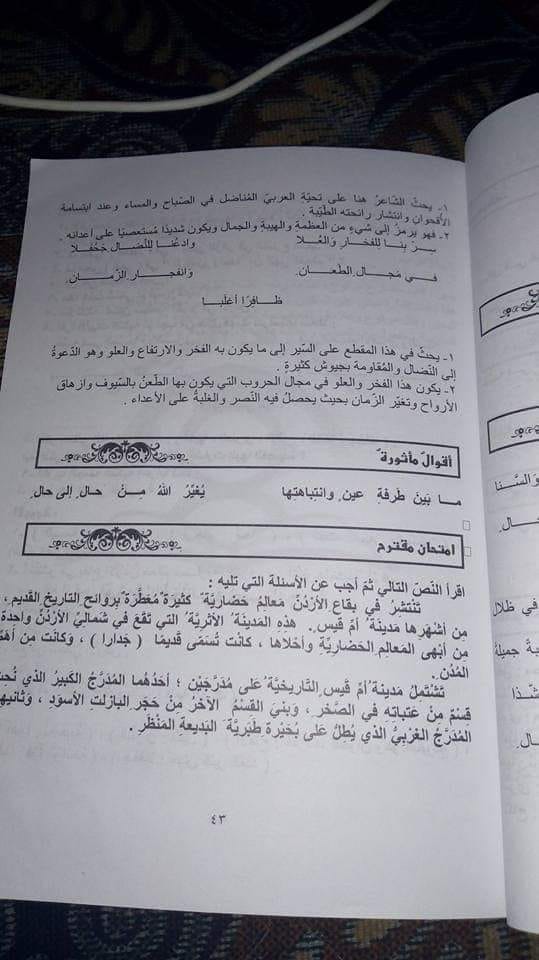 ١- يحثّ الشّاعرُ هنا على تحيّةِ العربيّ المُناضل في الصّباح والمساء وعند ابتسامة
الأُقحوان وانتشار رائحته الطّيّبة .
٢- فهو يرمزُ إلى شيءٍ من العظمةِ والهيبةِ والجمال ويكون شديدًا مُستعصيًا على أعدائه .
سِرْ بنا للفخار والعُلا وادعُنا للنّضال جَحْفلًا
في مَجال الطّعان وانفجار الزّمان
ظافِرًا أغلبا
١- يحثّ في هذا المقطع على السّير إلى ما يكون به الفخر والارتفاع والعلو وهو الدّعوةُ
إلى النّضال والمُقاومة بجيوش كثيرةٍ .
٢- يكون هذا الفخر والعلو في مجال الحروب التي يكون بها الطّعنُ بالسّيوف وإزهاق
الأرواح وتغيّر الزّمان بحيث يحصلُ فيه النّصر والغلبةُ على الأعداء .
أقوالٌ مأثورةٌ
ما بَينَ طَرفَةِ عينٍ وانتباهتِها يُغيِّرُ اللهُ مِنْ حالٍ إلى حالِ
امتحان مقترح
اقرأ النّصّ التالي ثمّ أجب عن الأسئلة التي تليه :
تَنْتَشِرُ في بِقاعِ الأرْدُنِّ مَعالِمُ حَضاريّةٌ كَثيرَةٌ مُعَطَّرَةٌ بِروائحِ التّاريخِ القَديمِ ،
مِن أشهَرِها مَدينَةُ أمّ قَيس . هذهِ المَدينَةُ الأثَريّةُ التي تَقَعُ في شَمالِيِّ الأرْدُنِّ واحدة
مِن أبْهى المَعالِمِ الحَضاريّةِ وأحْلاها ، كانَتْ تُسَمّى قَديمًا ( جدارا ) ، وكانَت مِن
المُدُن .
تَشْتَمِلُ مَدينَةُ أمّ قَيسٍ التّاريخيّةُ على مُدَرَّجَيْنِ ؛ أحَدُهُما المُدَرَّجُ الكَبيرُ الذي
قِسْمٌ مِنْ عَتَباتِهِ في الصَّخرِ ، وبُنِيَ القِسْمُ الآخَرُ مِنْ حَجَرِ البازلتِ الأسوَدِ ،
المُدَرَّجُ الغَرْبِيُّ الذي يُطِلُّ على بُحَيْرَةِ طَبَريّةَ البَديعةِ المَنْظَرِ .
٤٣